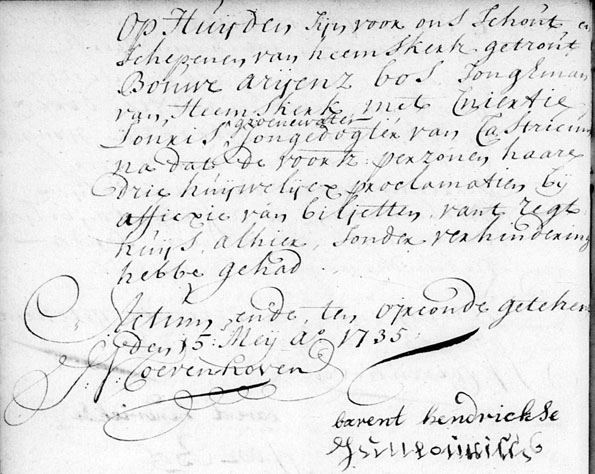 Op Huijden sijn voor ons Schout en
Schepenen van heemskerk getrout
Bouwe arijenz bos Jongkman
van Heemskerk met Niertie
groenewater
Jouris Jongedogter van Castricum
na dat de voorn: perzonen haare
drie huijwelijex proclamatien bij
affixie van biljetten vant regt
huijs alhier sonder verhindering
hebbe gehad
Actum ende ten oirconde geteken
den 15 Meij ao 1735
Coevenhoven
barent hendrickse